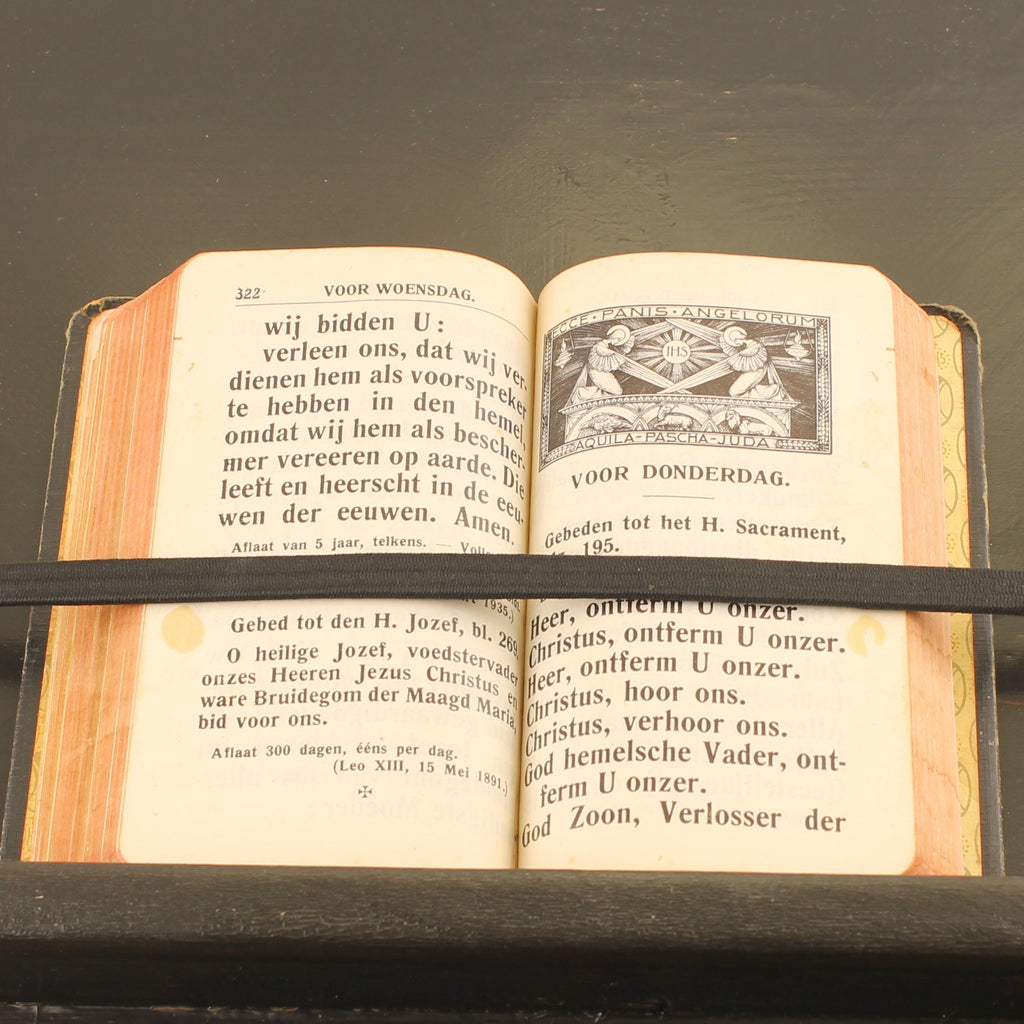 322
VOOR WOENSDAG.
wij bidden U:
verleen ons, dat wij ver-
dienen hem als voorspreker
te hebben in den hemel,
omdat wij hem als bescher-
mer vereeren op aarde. Die
leeft en heerscht in de eeu-
wen der eeuwen. Amen.
Aflaat van 5 jaar, telkens. —
1935.)
Gebed tot den H. Jozef, bl. 269.
O heilige Jozef, voedstervader
onzes Heeren Jezus Christus en
ware Bruidegom der Maagd Maria,
bid voor ons.
Aflaat 300 dagen, ééns per dag.
(Leo XIII, 15 Mei 1891.)
ECCE · PANIS · ANGELORUM
IHS
AQUILA-PASCHA-JUDA
VOOR DONDERDAG.
Gebeden tot het H. Sacrament,
195.
Heer, ontferm U onzer.
Christus, ontferm U onzer.
Heer, ontferm U onzer.
Christus, hoor ons.
Christus, verhoor ons.
God hemelsche Vader, ont-
ferm U onzer.
God Zoon, Verlosser der